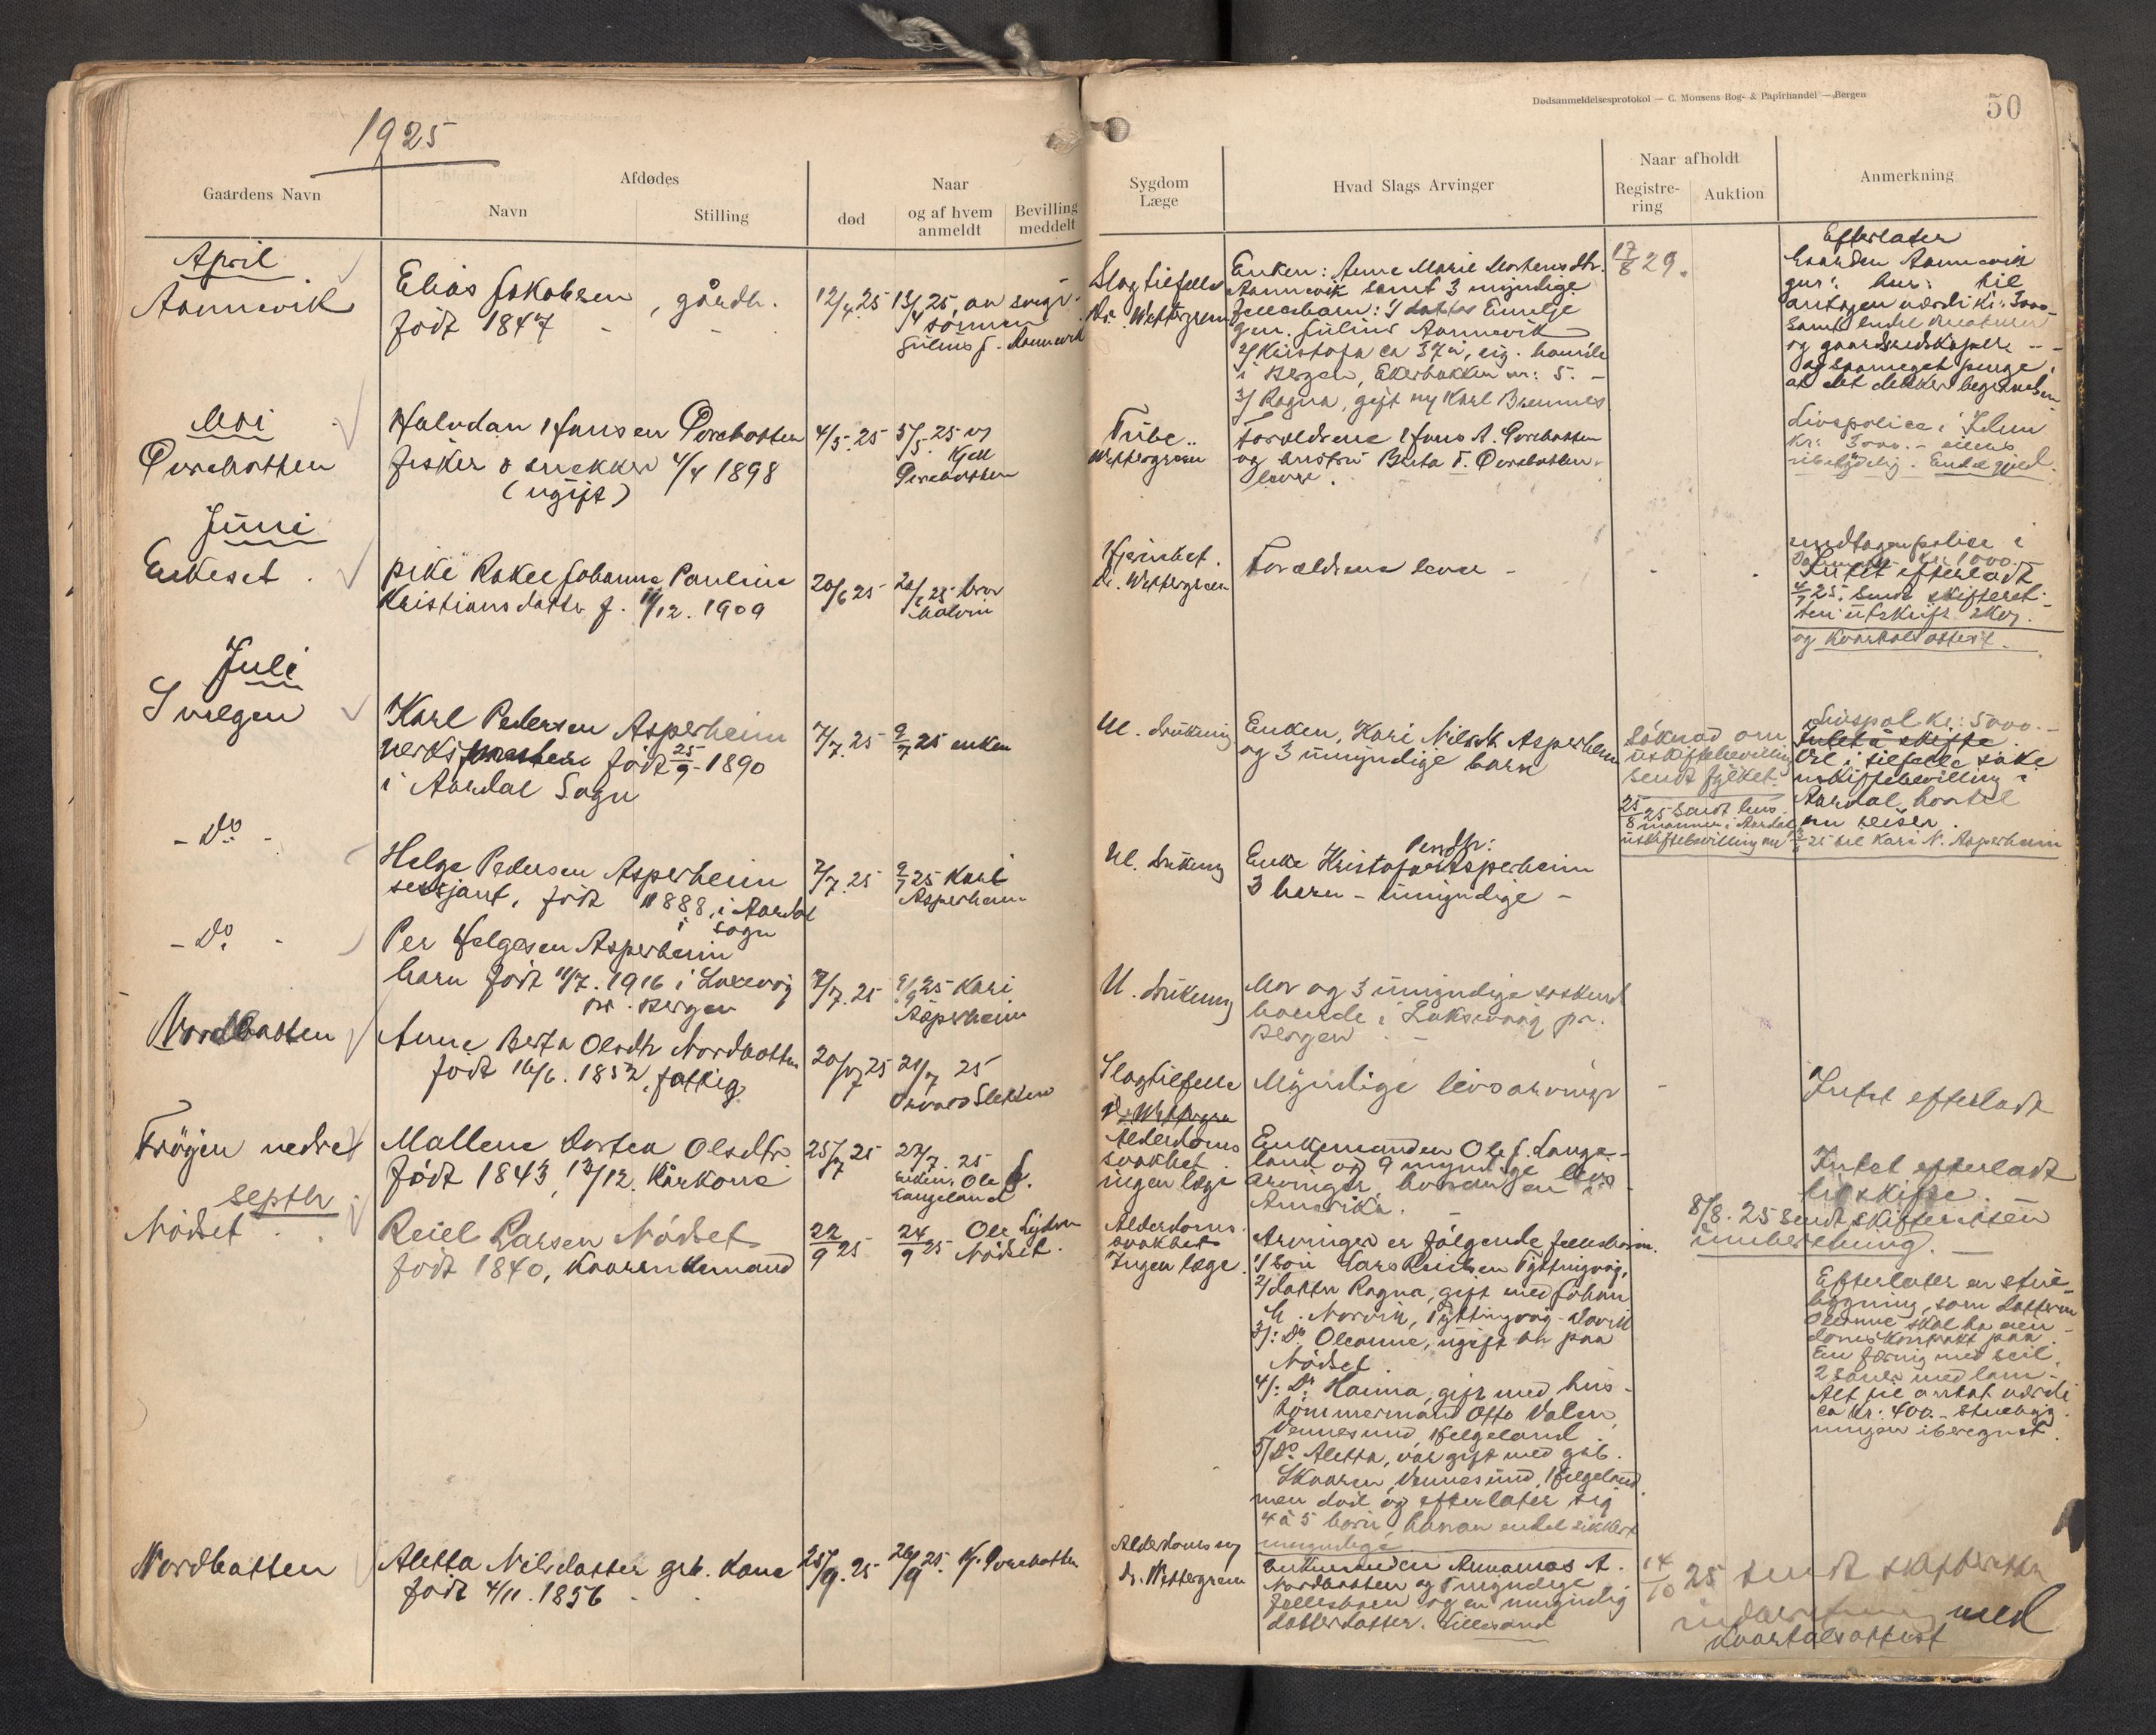 1925
Dødsanmeldelsesprotokol — C. Monsens Bog- & Papirhandel — Bergen
50
Gaardens Navn
Afdødes
Navn
Stilling
død
Naar
og af hvem
anmeldt
Bevilling
meddelt
Sygdom
Læge
Hvad Slags Arvinger
Naar afholdt
Registre-
ring
Auktion
Anmerkning
April
Aannevik
Elias Jakobsen, gårdbr.
født 1847
12/4.25
13/4 25, av svige-
sønnen
Julius J. Aannevik
Slagtilfelle
Dr. Wettergren
Enken: Anne Marie Mortensdtr.
Aannevik samt 3 myndige
fellesbarn: 1/ datter
gm. Julius Aannevik
2/ Kristofa ca 37 år, eig. handle
i Bergen, nr: 5. –
3/ Ragna, gift m/ Karl Brennes
17/8 29.
Efterlater
Gaarden Aannevik
til
antagen værdi kr: 3000
samt endel kreaturer
og gaardsredskaper
og saameget penge,
at det dekker begravelsen
Mai
Porebotten
Halvdan Hansen Porebotten
fisker & snekker 4/4 1898
(ugift)
4/5.25
5/5.25 v/
Kjell
Porebotten
Tube..
Wettergren
Foreldrene Hans A. Porebotten
og hustru Berta T. Porebotten
lever.
Livspolice i Idun
kr: 3000.–
ubetydelig. Endel gjeld.
Juni
Endeset
pike Rakel Johanne Pauline
Kristiansdatter f. 11/12. 1909
20/6 25
20/6 25 bror
Malvin
Hjernebet.
Dr. Wettergren
Foreldrene lever –
undtagen police i
kr: 1000.–
Intet efterladt
25. sendt skifteret-
ten utskrift
og kvartalsattest.
Juli
Svelgen
Karl Pedersen Asperheim
verksmester født 25/9-1890
i Aardal Sogn
7/7.25
9/7 25 enken
Ul. Drukning
Enken, Kari Nilsdtr. Asperheim
og 3 umyndige barn
Søknad om
uskiftebevilling
sendt fylket.
25/8 25 sendt lens-
mannen i Aardal
uskiftebevilling
til Kari N. Asperheim
Livspol kr: 5000.–
Intet å skifte
Vil i tilfelle søke
uskiftebevilling i
Aardal, hvortil
en reiser.
– Do –
Helge Pedersen Asperheim
sersjant, født 1888, i Aardal
i Sogn
7/7.25
9/7 25 Kari
Asperheim
Ul. Drukning
Enke Kristofa Persdtr: Asperheim
3 barn – umyndige –
– Do –
Per Helgesen Asperheim
barn født 11/7. 1916 i Laxevåg
pr. Bergen
7/7.25
9/9 25 Kari
Asperheim
U. Drukning
Mor og 3 umyndige søskend
boende i Laksevaag pr.
Bergen. –
Nordbotten
Anne Berta Olsdtr Nordbotten
født 16/6. 1852, fattig
20/7 25
21/7 25
Slagtilfelle
Dr. Wettergren
Myndige livsarvinger
Intet efterladt
Frøyen nedre
Mallene Dortea Olsdtr.
født 1843, 12/12. Kårkone
25/7 25
27/7. 25
Enkem. Ole J.
Langeland
Alderdoms
svakhet
ingen læge
Enkemanden Ole J. Lange-
land og 9 myndige livs-
arvinger, hvorav en i
Amerika.
Intet efterladt
til skifte.
8/8. 25 sendt skifteretten
innberetning.
Septbr
Nødset
Reiel Larsen Nødset
født 1840, Kaarenkemand
22/9 25
24/9 25 Ole
Nødset.
Alderdoms-
svakhet
Ingen læge.
Arvinger er følgende fellesbarn.
1/ Søn Lars Reielsen Tyttingvåg,
2/ datter Ragna, gift med Johan
Norvik, Tyttingvåg – Davik
3/: Do Oleanne, ugift bor paa
Nødset
4/: Do Hanna, gift med hus-
tømmermand Otto Valen
Vennesund, Helgeland
5/ Do Aletta, var gift med grb.
Skaaren, Vennesund, Helgeland,
men død og efterlater sig
4 à 5 barn, hvorav endel sikkert
myndige.
Efterlater en stue-
bygning, som datteren
Oleanne skal ha eien-
domskontrakt paa.
En færing med seil,
2 sauer med lam –
Alt til antat værdi
ca kr: 400.– stuebyg
ningen iberegnet.
Nordbotten
Aletta Nilsdatter grb. kone
født 4/11. 1856
25/9.25
26/9 25. Kj. Porebotten
Alderdomssvg
Dr. Wettergren
Enkemanden A.
Nordbotten og myndige
fellesbarn og en umyndig
datterdatter.
14/10 25 sendt skifteretten
indberetning med
kvartalsattest